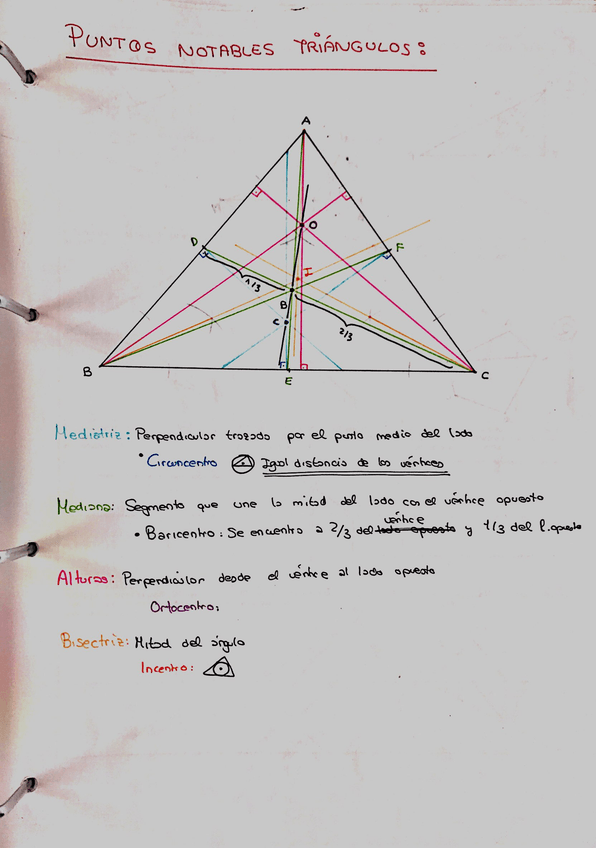 PUNTOS NOTABLES TRIÁNGULOS:
A
O
D
F
I
1/3
B
C
2/3
B
E
C
Mediatriz: Perpendicular trazada por el punto medio del lado
• Circuncentro Igual distancia de los vértices
Mediana: Segmento que une la mitad del lado con el vértice opuesto
vértice
• Baricentro: Se encuentra a 2/3 del lado opuesto y 1/3 del l. opuesto
Alturas: Perpendicular desde el vértice al lado opuesto
Ortocentro:
Bisectriz: Mitad del ángulo
Incentro: